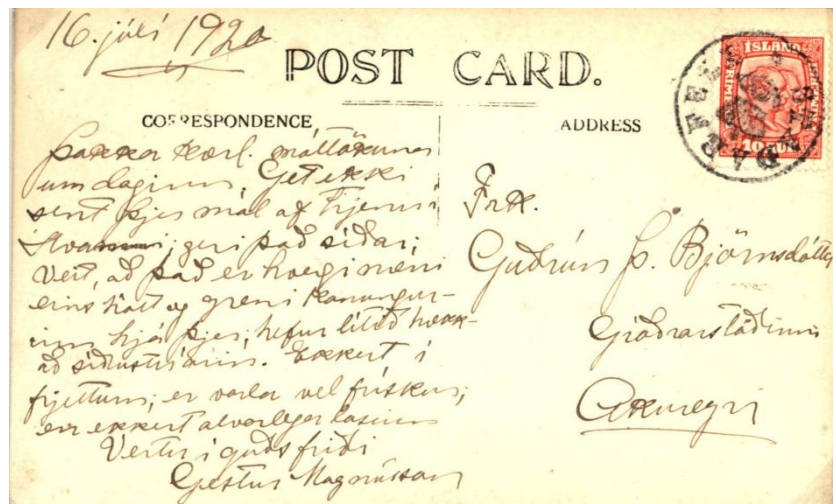 16. júlí 1920
POST CARD.
CORRESPONDENCE
ADDRESS
ÍSLAND
10 AUR
STAÐARFELL
Þakka kærl. móttökuna
um daginn, Get ekki
sent þjer mál af trjenu í
geri það síðar;
Veit, að það er hvergi nærri
eins hátt og greni konungur-
inn hjá þjer, hefur lítið hækk-
að síðustu árin. Ekkert í
frjettum; er varla vel frískur,
en ekkert alvarlegar lasinn
Vertu í guðs friði
Gestur Magnússon
Frk.
Guðrún Þ. Björnsdóttir
Gróðrarstöðinni
Akureyri